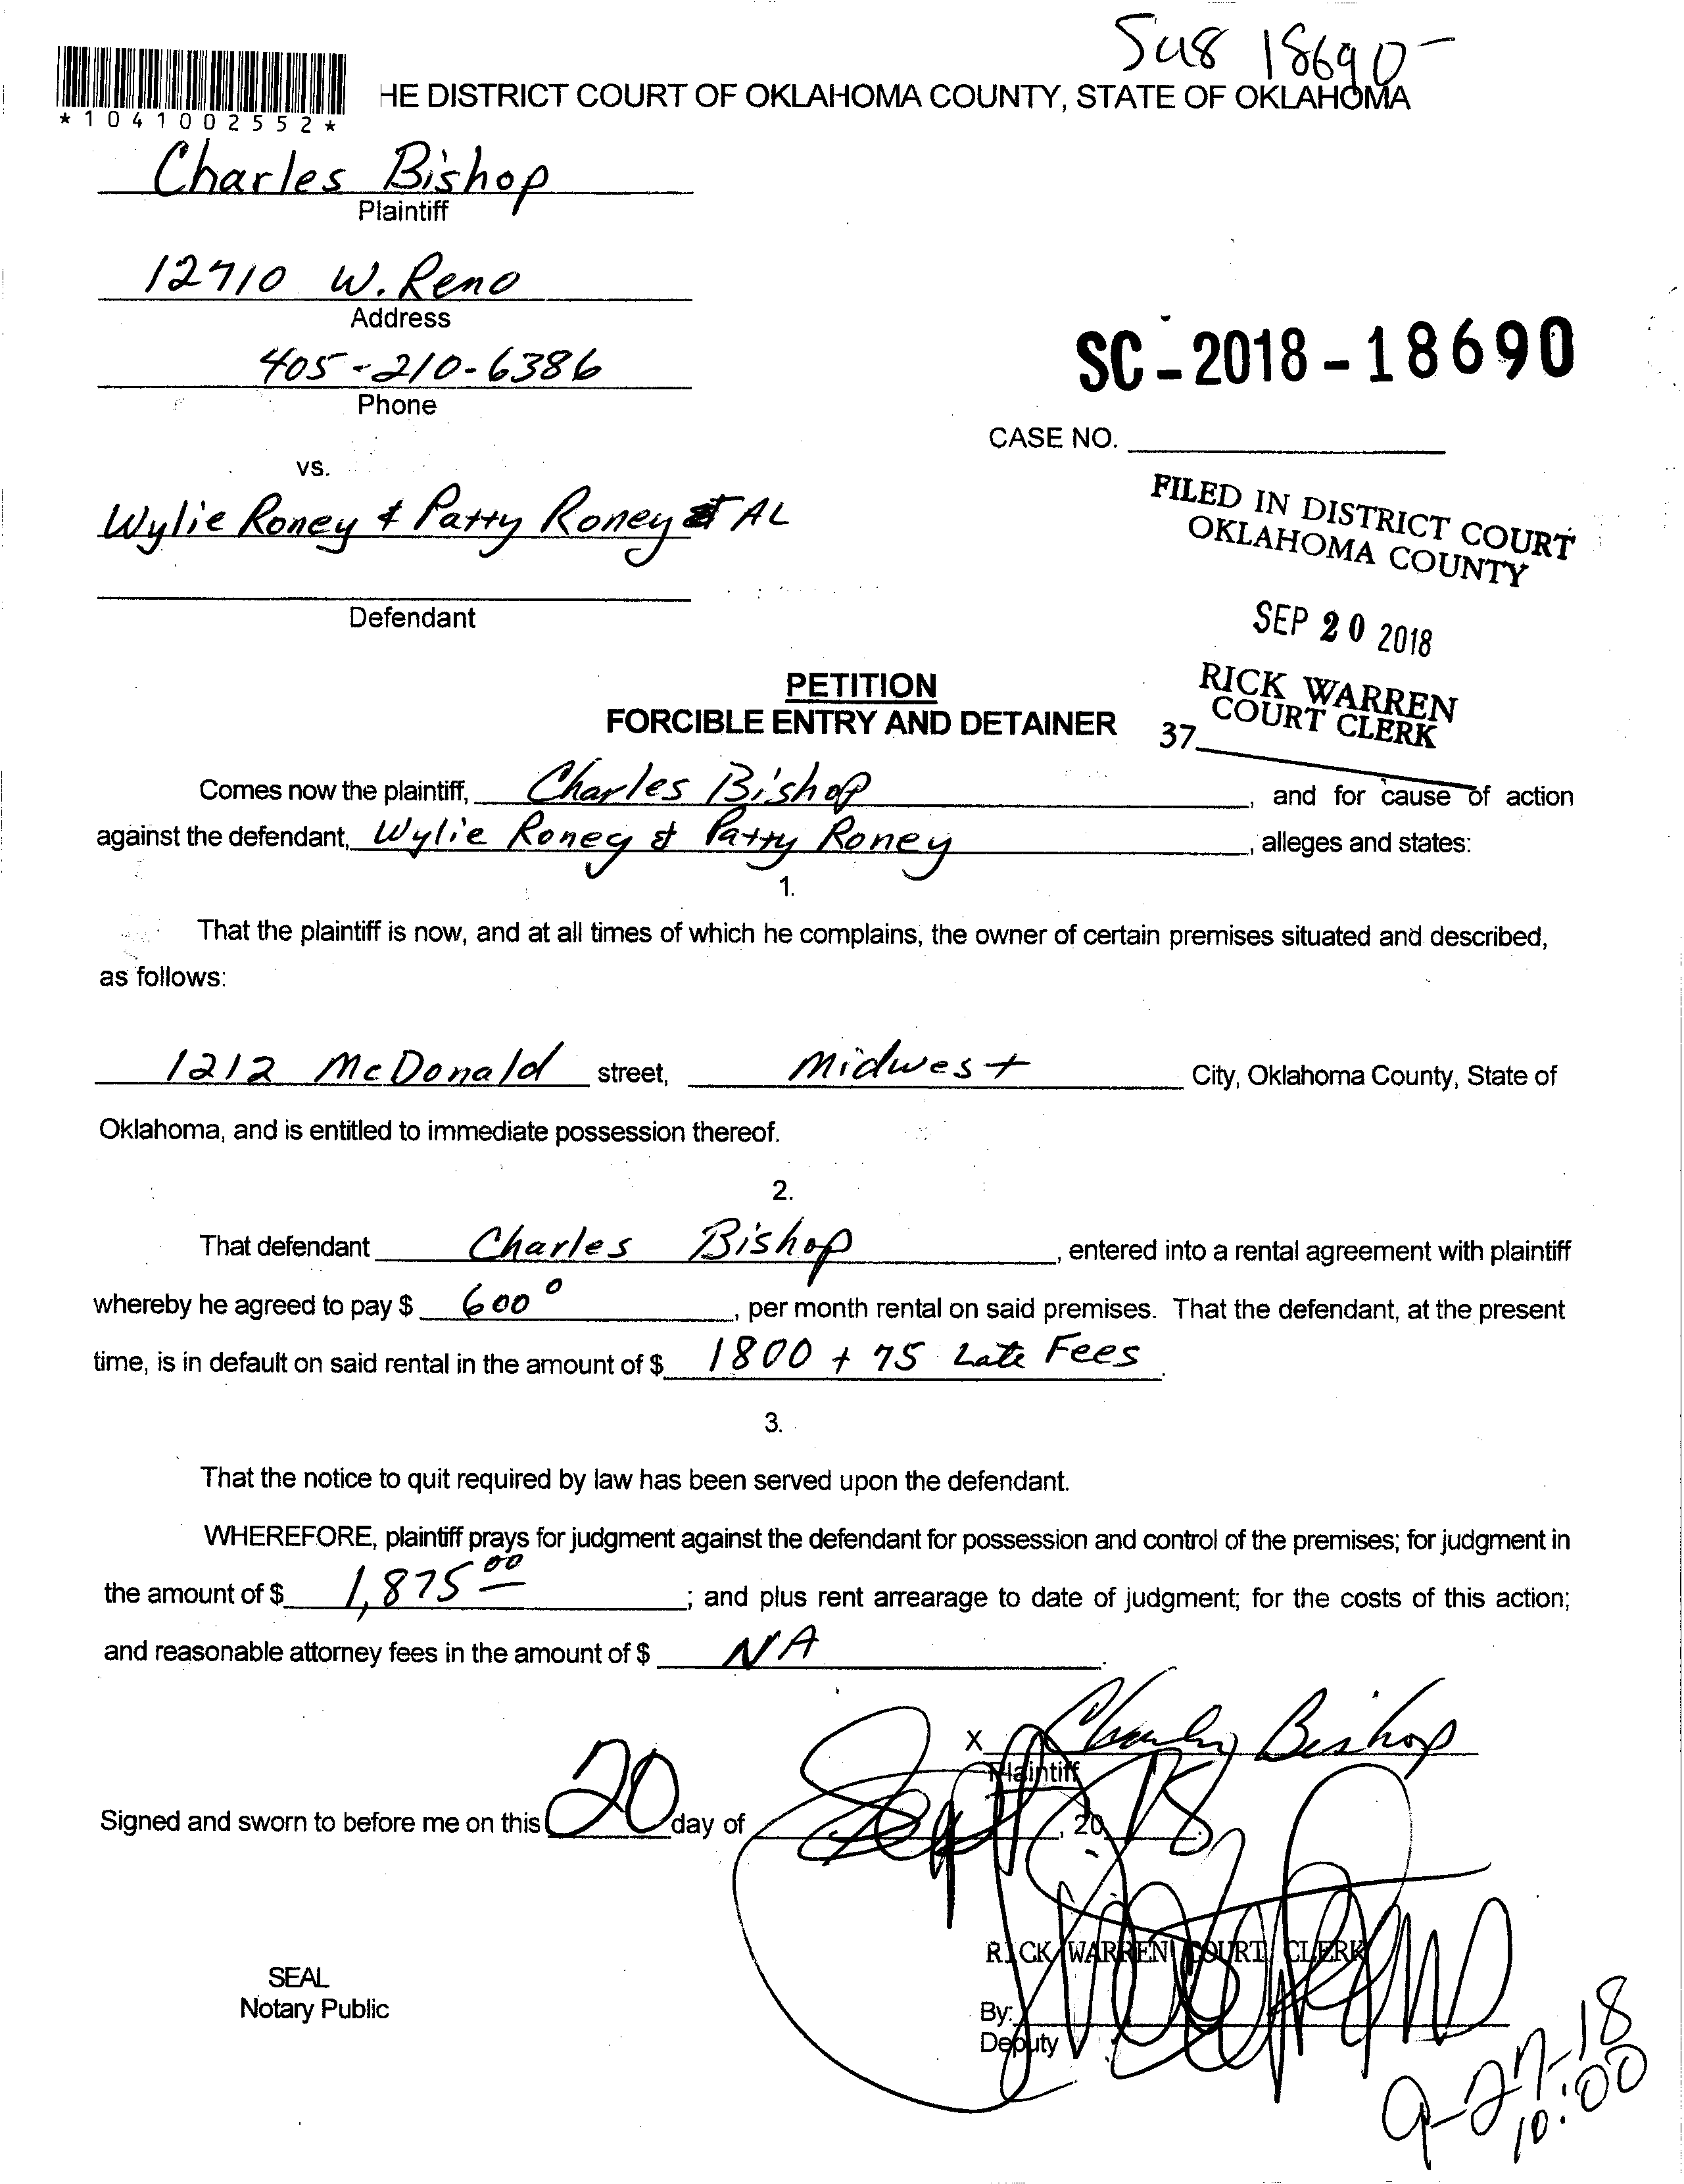 Sus 18690-
HE DISTRICT COURT OF OKLAHOMA COUNTY, STATE OF OKLAHOMA
*1041002552*
Charles Bishop
Plaintiff
12710 W. Reno
Address
405-210-6386
Phone
SC-2018-18690
CASE NO.
vs.
Wylie Roney & Patty Roney et AL
Defendant
FILED IN DISTRICT COURT
OKLAHOMA COUNTY
SEP 20 2018
RICK WARREN
COURT CLERK
37
PETITION
FORCIBLE ENTRY AND DETAINER
Comes now the plaintiff, Charles Bishop, and for cause of action
against the defendant, Wylie Roney & Patty Roney, alleges and states:
1.
That the plaintiff is now, and at all times of which he complains, the owner of certain premises situated and described,
as follows:
1212 McDonald street, Midwest City, Oklahoma County, State of
Oklahoma, and is entitled to immediate possession thereof.
2.
That defendant Charles Bishop, entered into a rental agreement with plaintiff
whereby he agreed to pay $ 600 º, per month rental on said premises. That the defendant, at the present
time, is in default on said rental in the amount of $ 1800 + 75 Late Fees.
3.
That the notice to quit required by law has been served upon the defendant.
WHEREFORE, plaintiff prays for judgment against the defendant for possession and control of the premises; for judgment in
the amount of $ 1,875 00; and plus rent arrearage to date of judgment; for the costs of this action;
and reasonable attorney fees in the amount of $ NA.
X Charles Bishop
Plaintiff
Signed and sworn to before me on this 20 day of Sept, 20 18.
RICK WARREN COURT CLERK
SEAL
Notary Public
By:
Deputy
9-27-18
10:00